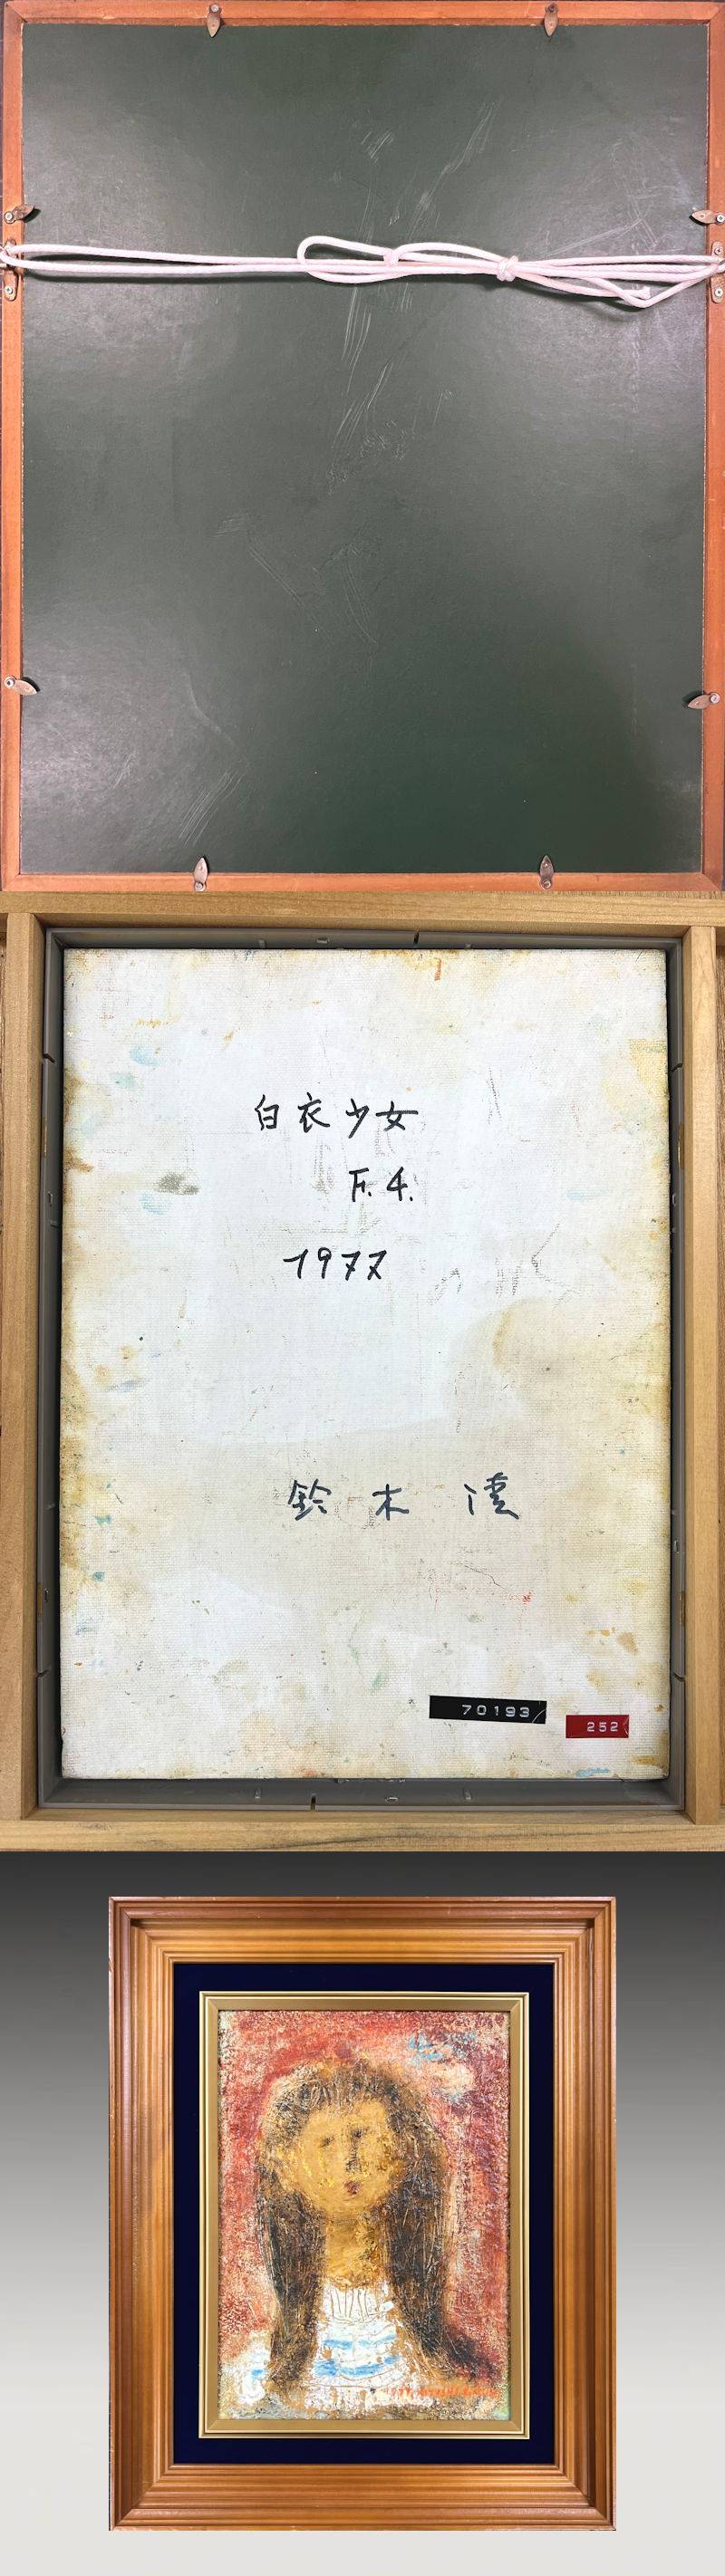 白衣少女
F.4.
1977
鈴木
70193
252